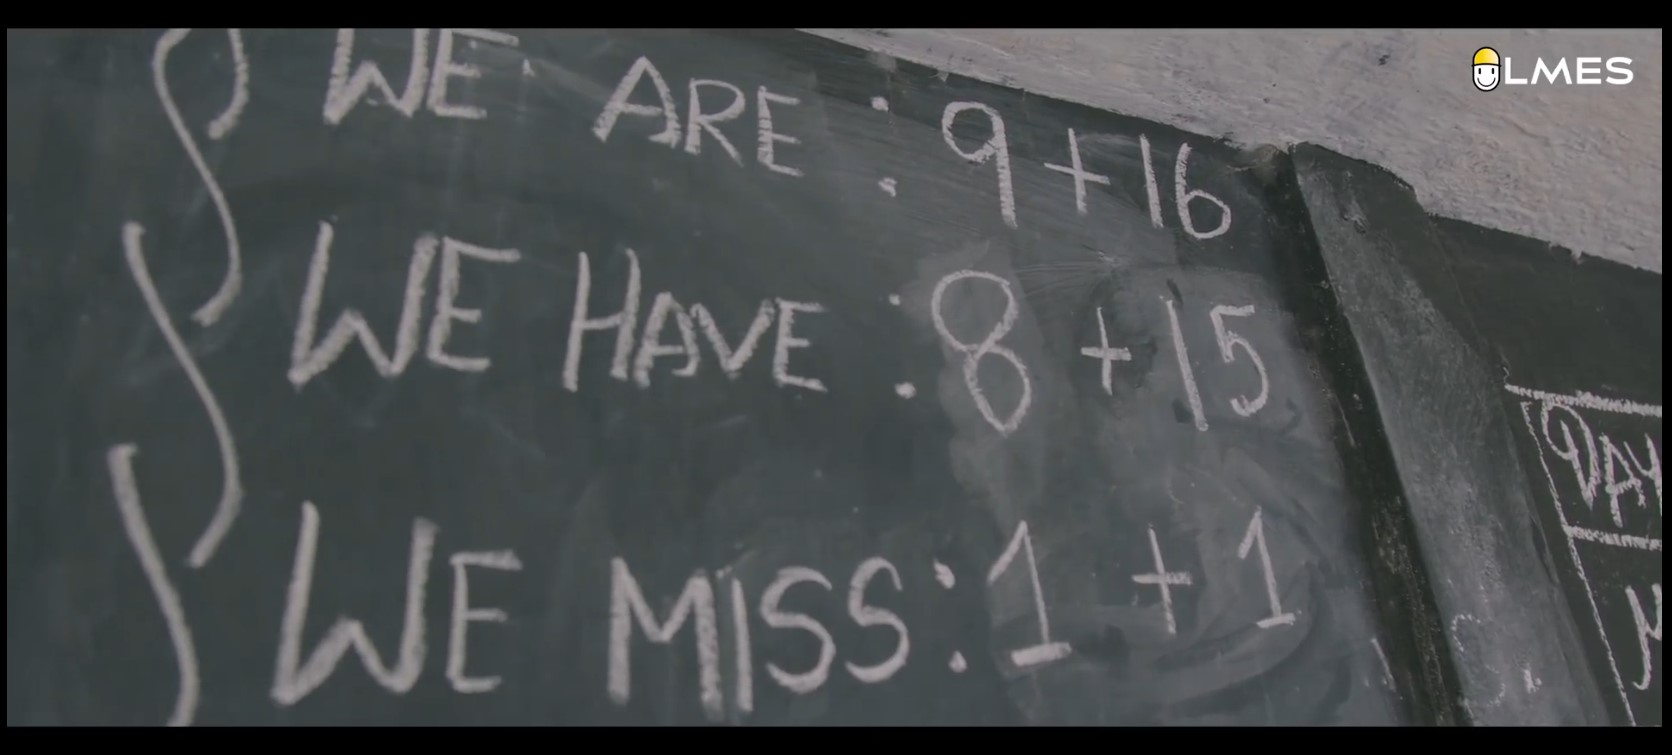 LMES
WE ARE : 9+16
WE HAVE : 8+15
WE MISS : 1+1
DAY